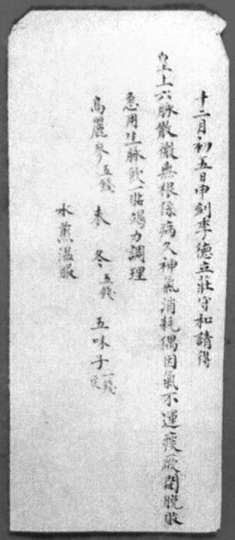 十二月初五日申刻李德立莊守和請得
皇上六脉散微無根係病久神氣消耗偶因氣不運痰厥閉脫敬
急用生脉飲一貼竭力調理
高麗參五錢 麥冬五錢 五味子一錢
水煎溫服